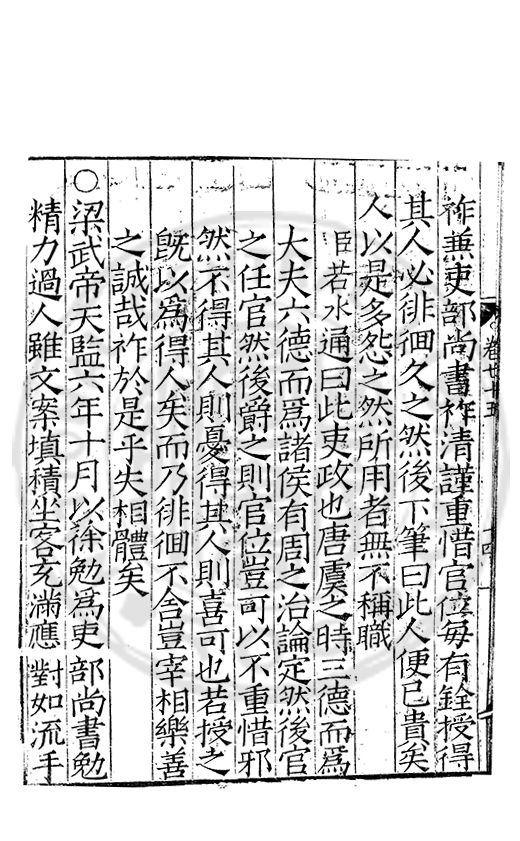 卷廿十五
祚兼吏部尚書祚清謹重惜官位每有銓授得
其人必徘徊久之然後下筆曰此人便已貴矣
人以是多怨之然所用者無不稱職
臣若水通曰此吏政也唐虞之時三德而爲
大夫六德而爲諸侯有周之治論定然後官
之任官然後爵之則官位豈可以不重惜邪
然不得其人則憂得其人則喜可也若授之
旣以爲得人矣而乃徘徊不舍豈宰相樂善
之誠哉祚於是乎失相體矣
○梁武帝天監六年十月以徐勉爲吏部尚書勉
精力過人雖文案填積坐客充滿應對如流手